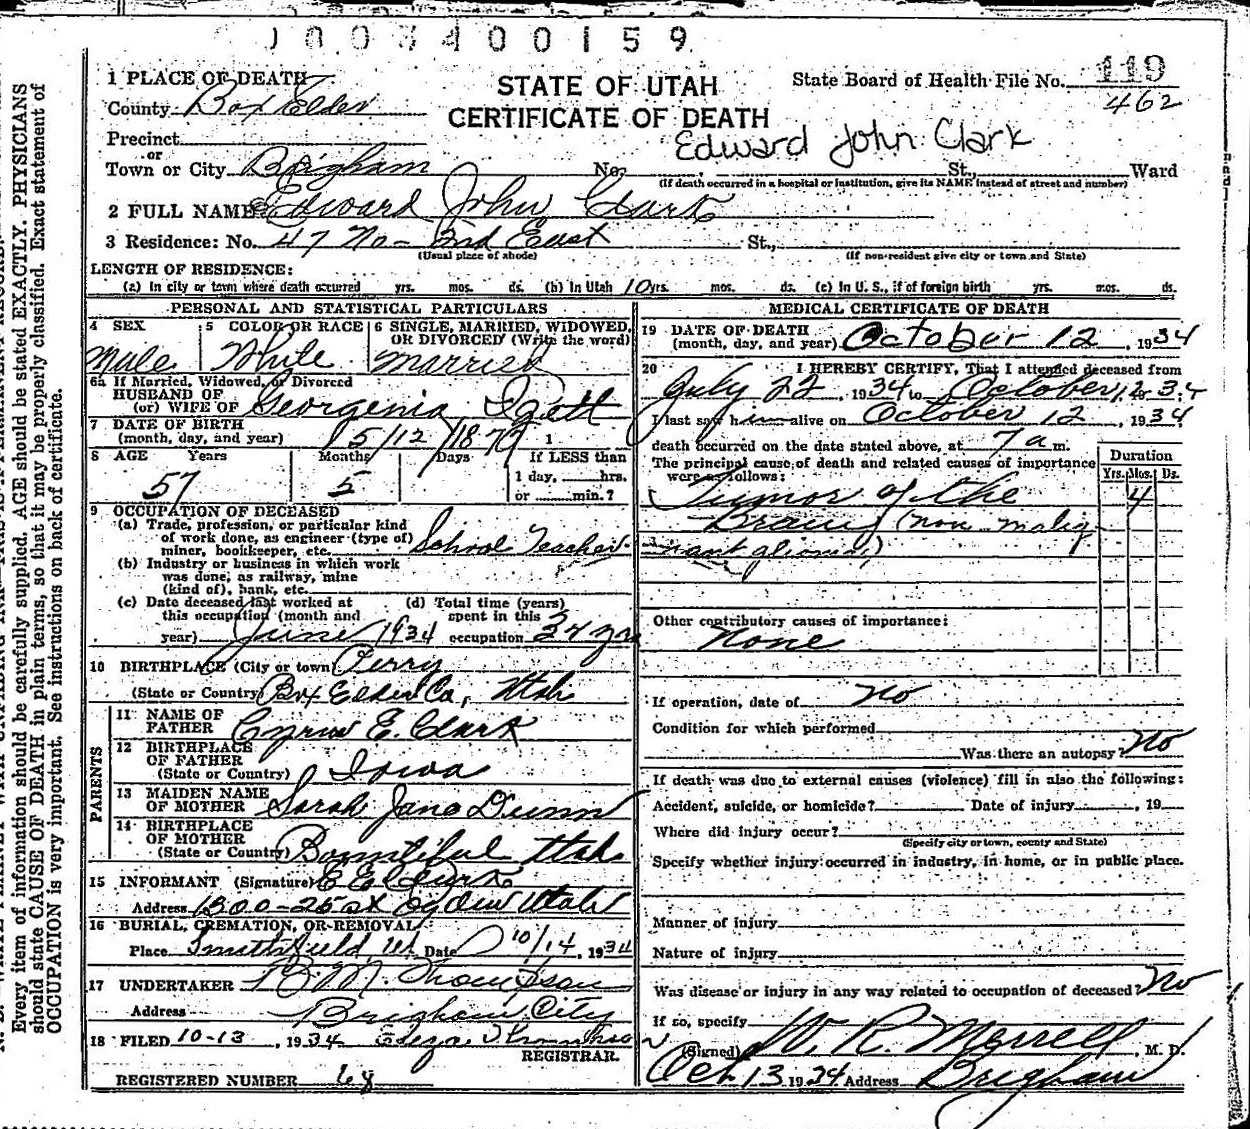 0 0 3 4 0 0 1 5 9
STATE OF UTAH
CERTIFICATE OF DEATH
State Board of Health File No. 119
462
1 PLACE OF DEATH
County Box Elder
Precinct
or
Town or City Brigham No. St., Ward
Edward John Clark
(If death occurred in a hospital or institution, give its NAME instead of street and number)
2 FULL NAME Edward John Clark
3 Residence: No. 47 No - 3rd East St.,
(Usual place of abode) (If non-resident give city or town and State)
LENGTH OF RESIDENCE:
(a) In city or town where death occurred yrs. mos. ds. (b) In Utah 10 yrs. mos. ds. (c) In U. S., if of foreign birth yrs. mos. ds.
PERSONAL AND STATISTICAL PARTICULARS
4 SEX 5 COLOR OR RACE 6 SINGLE, MARRIED, WIDOWED, OR DIVORCED (Write the word)
Male White Married
6a If Married, Widowed, or Divorced
HUSBAND OF
(or) WIFE OF Georgenia
7 DATE OF BIRTH
(month, day, and year) 5/12/1877 1
8 AGE Years Months Days If LESS than
57 5 1 day, hrs.
or min.?
9 OCCUPATION OF DECEASED
(a) Trade, profession, or particular kind
of work done, as engineer (type of)
miner, bookkeeper, etc. School Teacher
(b) Industry or business in which work
was done, as railway, mine
(kind of), bank, etc.
(c) Date deceased last worked at (d) Total time (years)
this occupation (month and spent in this
year) June 1934 occupation 34 yrs
10 BIRTHPLACE (City or town) Perry
(State or Country) Box Elder Co, Utah
PARENTS
11 NAME OF
FATHER Cyrus E. Clark
12 BIRTHPLACE
OF FATHER
(State or Country) Iowa
13 MAIDEN NAME
OF MOTHER Sarah Jane Dunn
14 BIRTHPLACE
OF MOTHER
(State or Country) Bountiful Utah
15 INFORMANT (Signature) E E Clark
Address 1300 - 25 st Ogden Utah
16 BURIAL, CREMATION, OR REMOVAL
Place Smithfield Ut Date 10/14, 1934
17 UNDERTAKER B. M. Thompson
Address Brigham City
18 FILED 10-13, 1934
REGISTRAR.
REGISTERED NUMBER 68
MEDICAL CERTIFICATE OF DEATH
19 DATE OF DEATH
(month, day, and year) October 12, 1934
20 I HEREBY CERTIFY, That I attended deceased from
July 22, 1934 to October 12, 34
I last saw him alive on October 12, 1934
death occurred on the date stated above, at 7 a m.
The principal cause of death and related causes of importance
were as follows:
Duration
Yrs. Mos. Ds.
Tumor of the 4
Brain (non malig
nant glioma)
Other contributory causes of importance:
None
If operation, date of no
Condition for which performed
Was there an autopsy? No
If death was due to external causes (violence) fill in also the following:
Accident, suicide, or homicide? Date of injury , 19
Where did injury occur?
(Specify city or town, county and State)
Specify whether injury occurred in industry, in home, or in public place.
Manner of injury
Nature of injury
Was disease or injury in any way related to occupation of deceased? No
If so, specify
(Signed) W. R. Merrell, M. D.
Oct 13 1934 Address Brigham
Every item of information should be carefully supplied. AGE should be stated EXACTLY. PHYSICIANS
should state CAUSE OF DEATH in plain terms, so that it may be properly classified. Exact statement of
OCCUPATION is very important. See instructions on back of certificate.